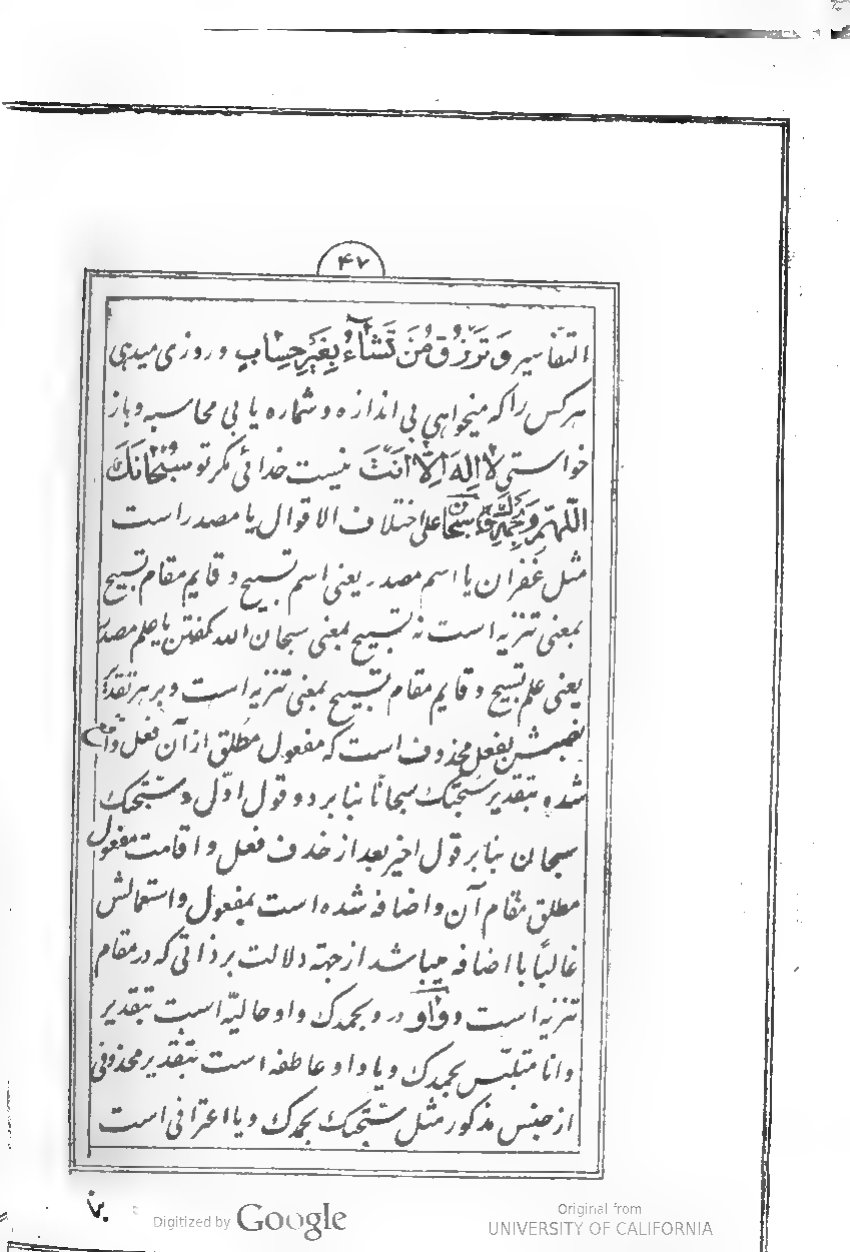 ۴۷
التفاسیر وَ تَرْزُقُ مَنْ تَشَاءُ بِغَیْرِ حِسَابٍ و روزی میدهی
هر کس را که میخواهی بی اندازه و شماره یا بی محاسبه و باز
خواستی لا اله الا انت نیست خدائی مگر تو سبحانک
اللهم وبحمدک سبحان علی اختلاف الاقوال یا مصدر است
مثل غفران یا اسم مصدر یعنی اسم تسبیح و قایم مقام تسبیح
بمعنی تنزیه است نه تسبیح بمعنی سبحان الله گفتن یا علم مصدر
یعنی علم تسبیح و قایم مقام تسبیح بمعنی تنزیه است و بر هر تقدیر
نصبش بفعل محذوف است که مفعول مطلق از آن فعل واقع
شده بتقدیر سبحتک سبحانا بنا بر دو قول اوّل و سبحتک
سبحان بنا بر قول اخیر بعد از حذف فعل و اقامت مفعول
مطلق مقام آن و اضافه شده است بمفعول و استعمالش
غالبًا با اضافه میباشد از جهته دلالت بر ذاتی که در مقام
تنزیه است و واو در و بحمدک واو حالیّه است بتقدیر
وانا متلبّس بحمدک و یا واو عاطفه است بتقدیر محذوفی
از جنس مذکور مثل سبحتک بحمدک و یا اعتراضی است
Digitized by Google
Original from
UNIVERSITY OF CALIFORNIA